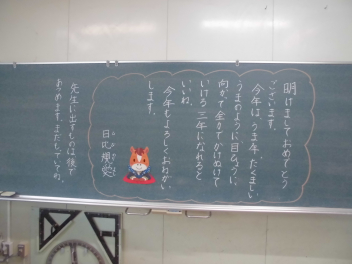 明けましておめでとう
ございます。
今年は、うま年、たくましい
うまのように、目ひょうに
向かって全力でかけぬけて
いける 三年になれると
いいね。
今年もよろしくおねがい
します。
先生に出すものは後で
あつめます。まだしていてね。